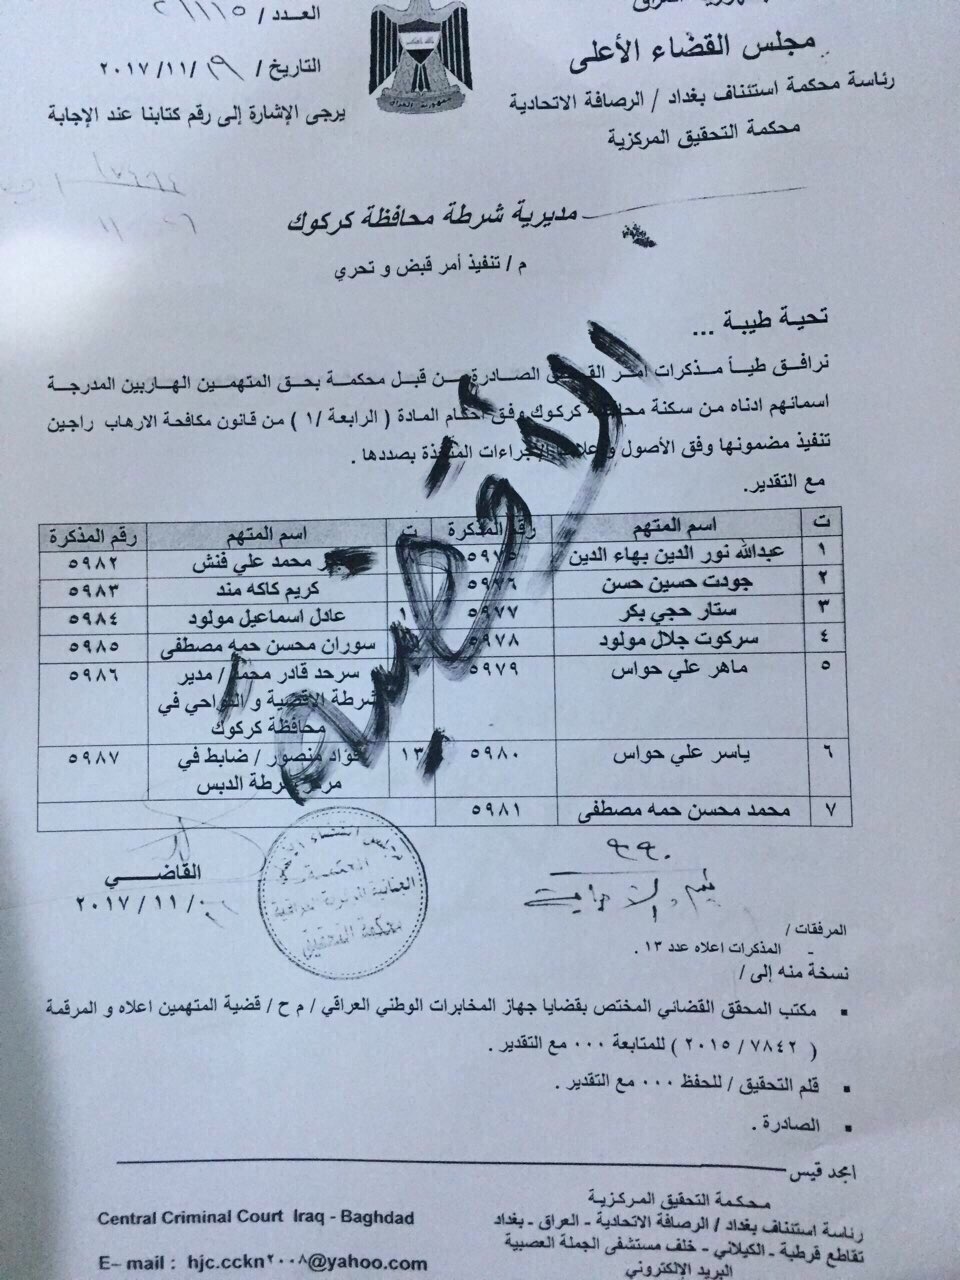 مجلس القضاء الأعلى
رئاسة محكمة استئناف بغداد / الرصافة الاتحادية
محكمة التحقيق المركزية
العدد /
التاريخ / ١٩ /١١/ ٢٠١٧
يرجى الإشارة إلى رقم كتابنا عند الإجابة
مديرية شرطة محافظة كركوك
م / تنفيذ أمر قبض و تحري
تحية طيبة ...
نرافق طياً مذكرات امر الصادرة من قبل محكمة بحق المتهمين الهاربين المدرجة
اسمائهم ادناه من سكنة محافظة كركوك وفق احكام المادة ( الرابعة /١ ) من قانون مكافحة الارهاب راجين
تنفيذ مضمونها وفق الأصول الإجراءات المتخذة بصددها .
مع التقدير.
ت اسم المتهم رقم المذكرة ت اسم المتهم رقم المذكرة
١ عبدالله نور الدين بهاء الدين ٥٩٧٥ محمد علي فنش ٥٩٨٢
٢ جودت حسين حسن ٥٩٧٦ كريم كاكه مند ٥٩٨٣
٣ ستار حجي بكر ٥٩٧٧ عادل اسماعيل مولود ٥٩٨٤
٤ سركوت جلال مولود ٥٩٧٨ سوران محسن حمه مصطفى ٥٩٨٥
٥ ماهر علي حواس ٥٩٧٩ سرحد قادر محمد / مدير ٥٩٨٦
شرطة الاقضية و النواحي في
محافظة كركوك
٦ ياسر علي حواس ٥٩٨٠ ١٣ فؤاد منصور / ضابط في ٥٩٨٧
مركز شرطة الدبس
٧ محمد محسن حمه مصطفى ٥٩٨١
القاضي
٢٠١٧ / ١١ /
محكمة التحقيق
المرفقات /
- المذكرات اعلاه عدد ١٣ .
نسخة منه إلى /
▪ مكتب المحقق القضائي المختص بقضايا جهاز المخابرات الوطني العراقي / م ح / قضية المتهمين اعلاه و المرقمة
( ٧٨٤٢ / ٢٠١٥ ) للمتابعة ٠٠٠ مع التقدير .
▪ قلم التحقيق / للحفظ ٠٠٠ مع التقدير .
▪ الصادرة .
امجد قيس
محكمة التحقيق المركزية
رئاسة استئناف بغداد / الرصافة الاتحادية - العراق - بغداد
تقاطع قرطبة - الكيلاني - خلف مستشفى الجملة العصبية
البريد الإلكتروني
Central Criminal Court Iraq - Baghdad
E– mail : hjc.cckn٢٠٠٨@yahoo.com